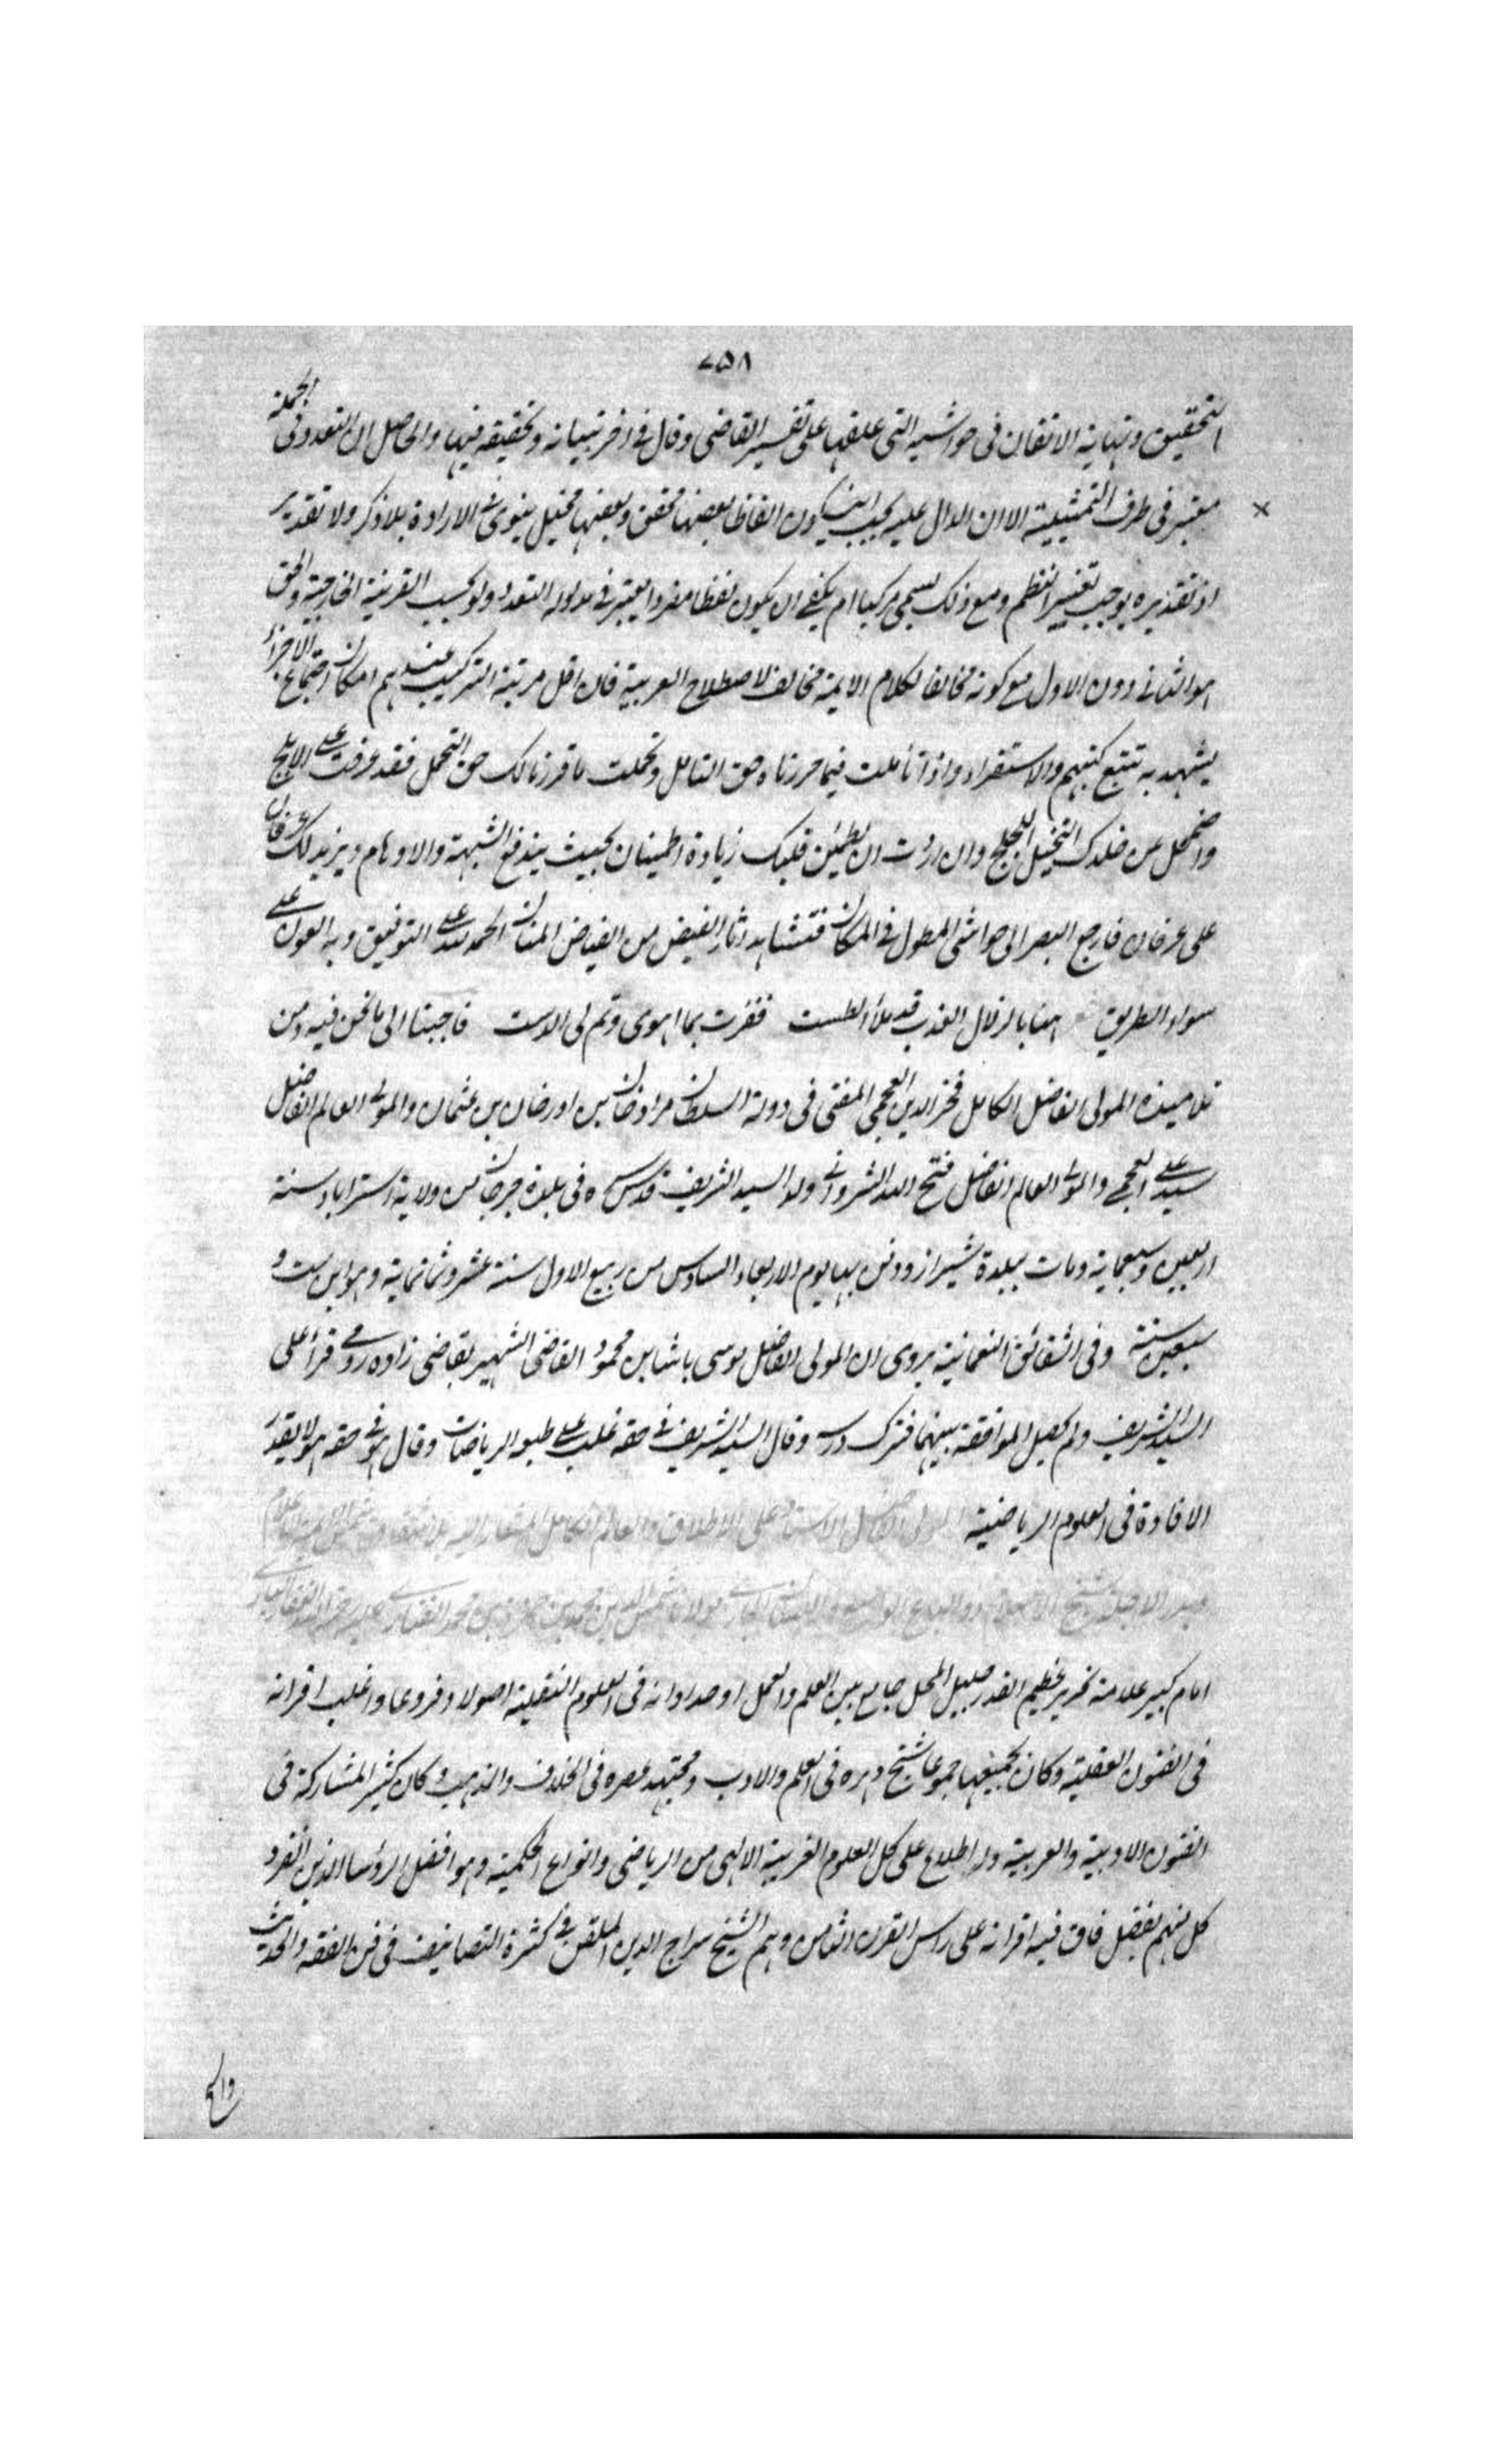 ٧٥٨
التحقيق ونهاية الاتقان فى حواشيه التى علقها على تفسير القاضى وقال فى اخر تبيانه وتحقيقه فيها والحاصل ان التعدد فى الجملة
معتبر فى طرف التمثيلية الا ان الدال عليه يجب ان يكون الفاظا بعضها محقق وبعضها مخيل ينوى فى الارادة بلا ذكر ولا تقدير
اذ تقديره يوجب تغيير النظم ومع ذلك يسمى مركبا ام يكفى ان يكون لفظا مفردا يعتبر فى مدلوله التعدد ولو بحسب القرينة الخارجية والحق
هو الثانى دون الاول مع كونه مخالفا لكلام الايمة مخالف لاصطلاح العربية فان اقل مرتبة التركيب عندهم امكان اجتماع الاجزاء
يشهد به تتبع كتبهم والاستقراء واذا تأملت فيما حررناه حق التامل وتحملت ما قررنا لك حق التحمل فقد عرفت على الابلج
واضمحل من خلدك التخييل اللجلج وان اردت ان يطمئن قلبك زيادة اطمينان بحيث يندفع الشبهة والاوهام ويزيد لك عرفان
على عرفان فارجع البصر الى حواشى المطول فى المكان فتشاهد اثار الفيض من الفياض المنان الحمد لله على التوفيق وبه العون على
سواء الطريق هنا بالزلال العذب قد ملأ الطست ففزت بما اهوى وتم لى الدست فاجبنا الى ما نحن فيه ومن
تلاميذه المولى الفاضل الكامل فخر الدين العجمى المفتى فى دولة السلطان مراد خان بن اورخان بن عثمان والمولى العالم الفاضل
سيد على العجمى والمولى العالم الفاضل فتح الله الشروانى ولد السيد الشريف قدس سره فى بلدة جرجان من ولاية استراباد سنة
اربعين وسبعماية ومات ببلدة شيراز ودفن بها يوم الاربعاء السادس من ربيع الاول سنة عشر وثمانماية وهو ابن ست و
سبعين سنة وفى الشقائق النعمانية يروى ان المولى الفاضل موسى باشا بن محمود القاضى الشهير بقاضى زاده رومى قرأ على
السيد الشريف ولم يحصل الموافقة بينهما فترك درسه وقال السيد الشريف فى حقه غلب على طبعه الرياضات وقال هو فى حقه هو لا يقدر
الافادة فى العلوم الرياضية المولى الفاضل الاستاد على الاطلاق والعالم الكامل المشار اليه بلا شقاق
مولانا شمس الدين محمد بن حمزة بن محمد الفنارى عليه رحمة
امام كبير علامة نحرير عظيم القدر جليل المحل جامع بين العلم والعمل اوحد اوانه فى العلوم النقلية اصولا وفروعا واغلب اقرانه
فى الفنون العقلية وكان بجميعها جموعا شيخ دهره فى العلم والادب ومجتهد عصره فى الخلاف والمذهب وكان كثير المشاركة فى
الفنون الادبية والعربية وله اطلاع على كل العلوم الغريبة الالهى من الرياضى وانواع الحكمية وهو افضل الرؤسا الذين انفرد
كل منهم بفضل فاق فيه اقرانه على راس القرن الثامن وهم الشيخ سراج الدين الملقن فى كثرة التصانيف فى فن الفقه والحديث